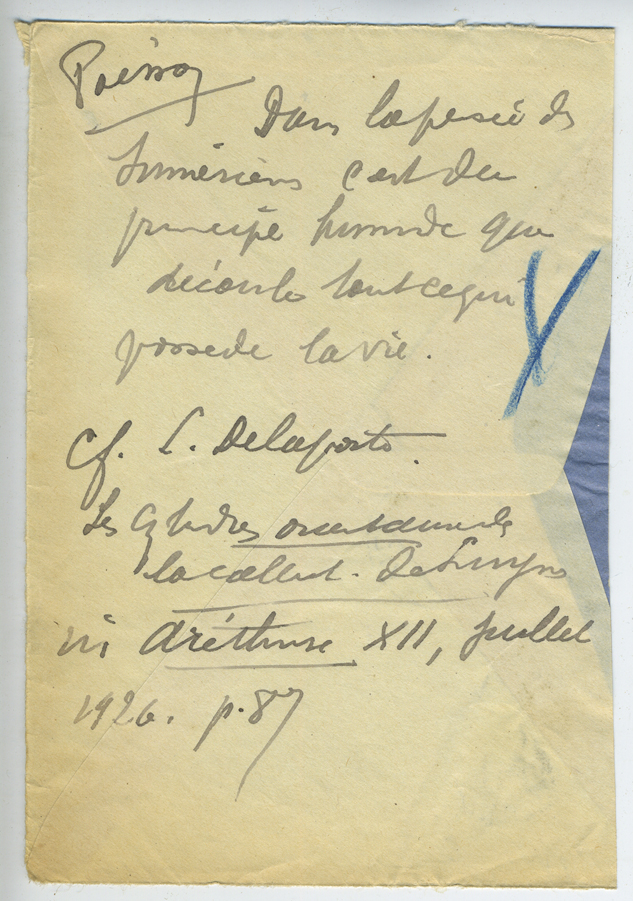 Poisson
Dans la pensée des
Sumériens c'est du
principe humide que
découle tout ce qui
possede la vie.
cf. L. Delaporte.
Les cylindres orientaux de
la collect. de Luynes
in Aréthuse XII, juillet
1926. p. 87